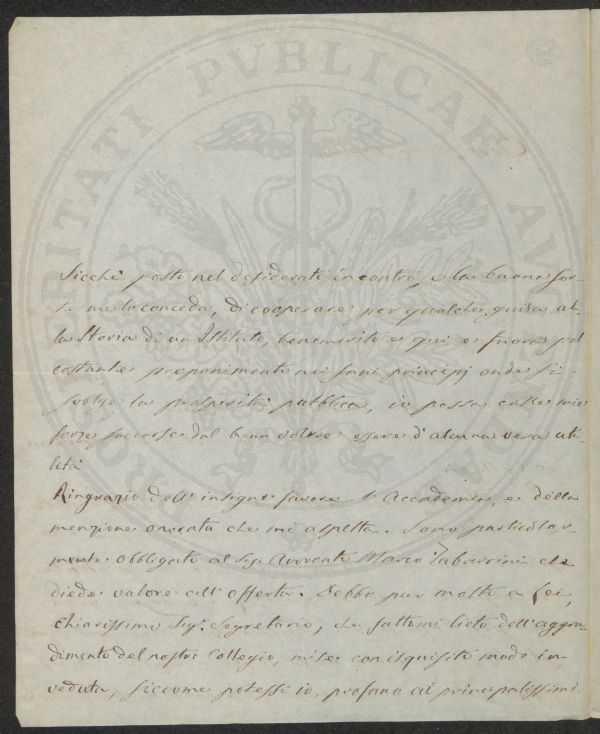 PROSPERITATI PVBLICAE AVGENDAE
Sicchè posto nel desiderato incontro, e la buona sor-
te me lo conceda, di cooperare per qualche guisa al-
la Storia di un Istituto, benemerito e qui e fuora pel
costante proponimento nei sani principj onde si
svolge la prosperità pubblica, io possa colle mie
forze soccorse dal buon volere essere d'alcuna vera uti-
lità
Ringrazio dell'insigne favore l'Accademia, e della
menzione onorata che mi aspetta. Sono particolar-
mente obbligato al Sig. Avvocato Marco Tabarrini che
diede valore all'offerta. Debbo pur molto a Lei,
chiarissimo Sigr. Segretario, che fattomi lieto dell'aggra-
dimento del nostro Collegio, mise con isquisito modo in
veduta, siccome potessi io, profano ai principalissimi